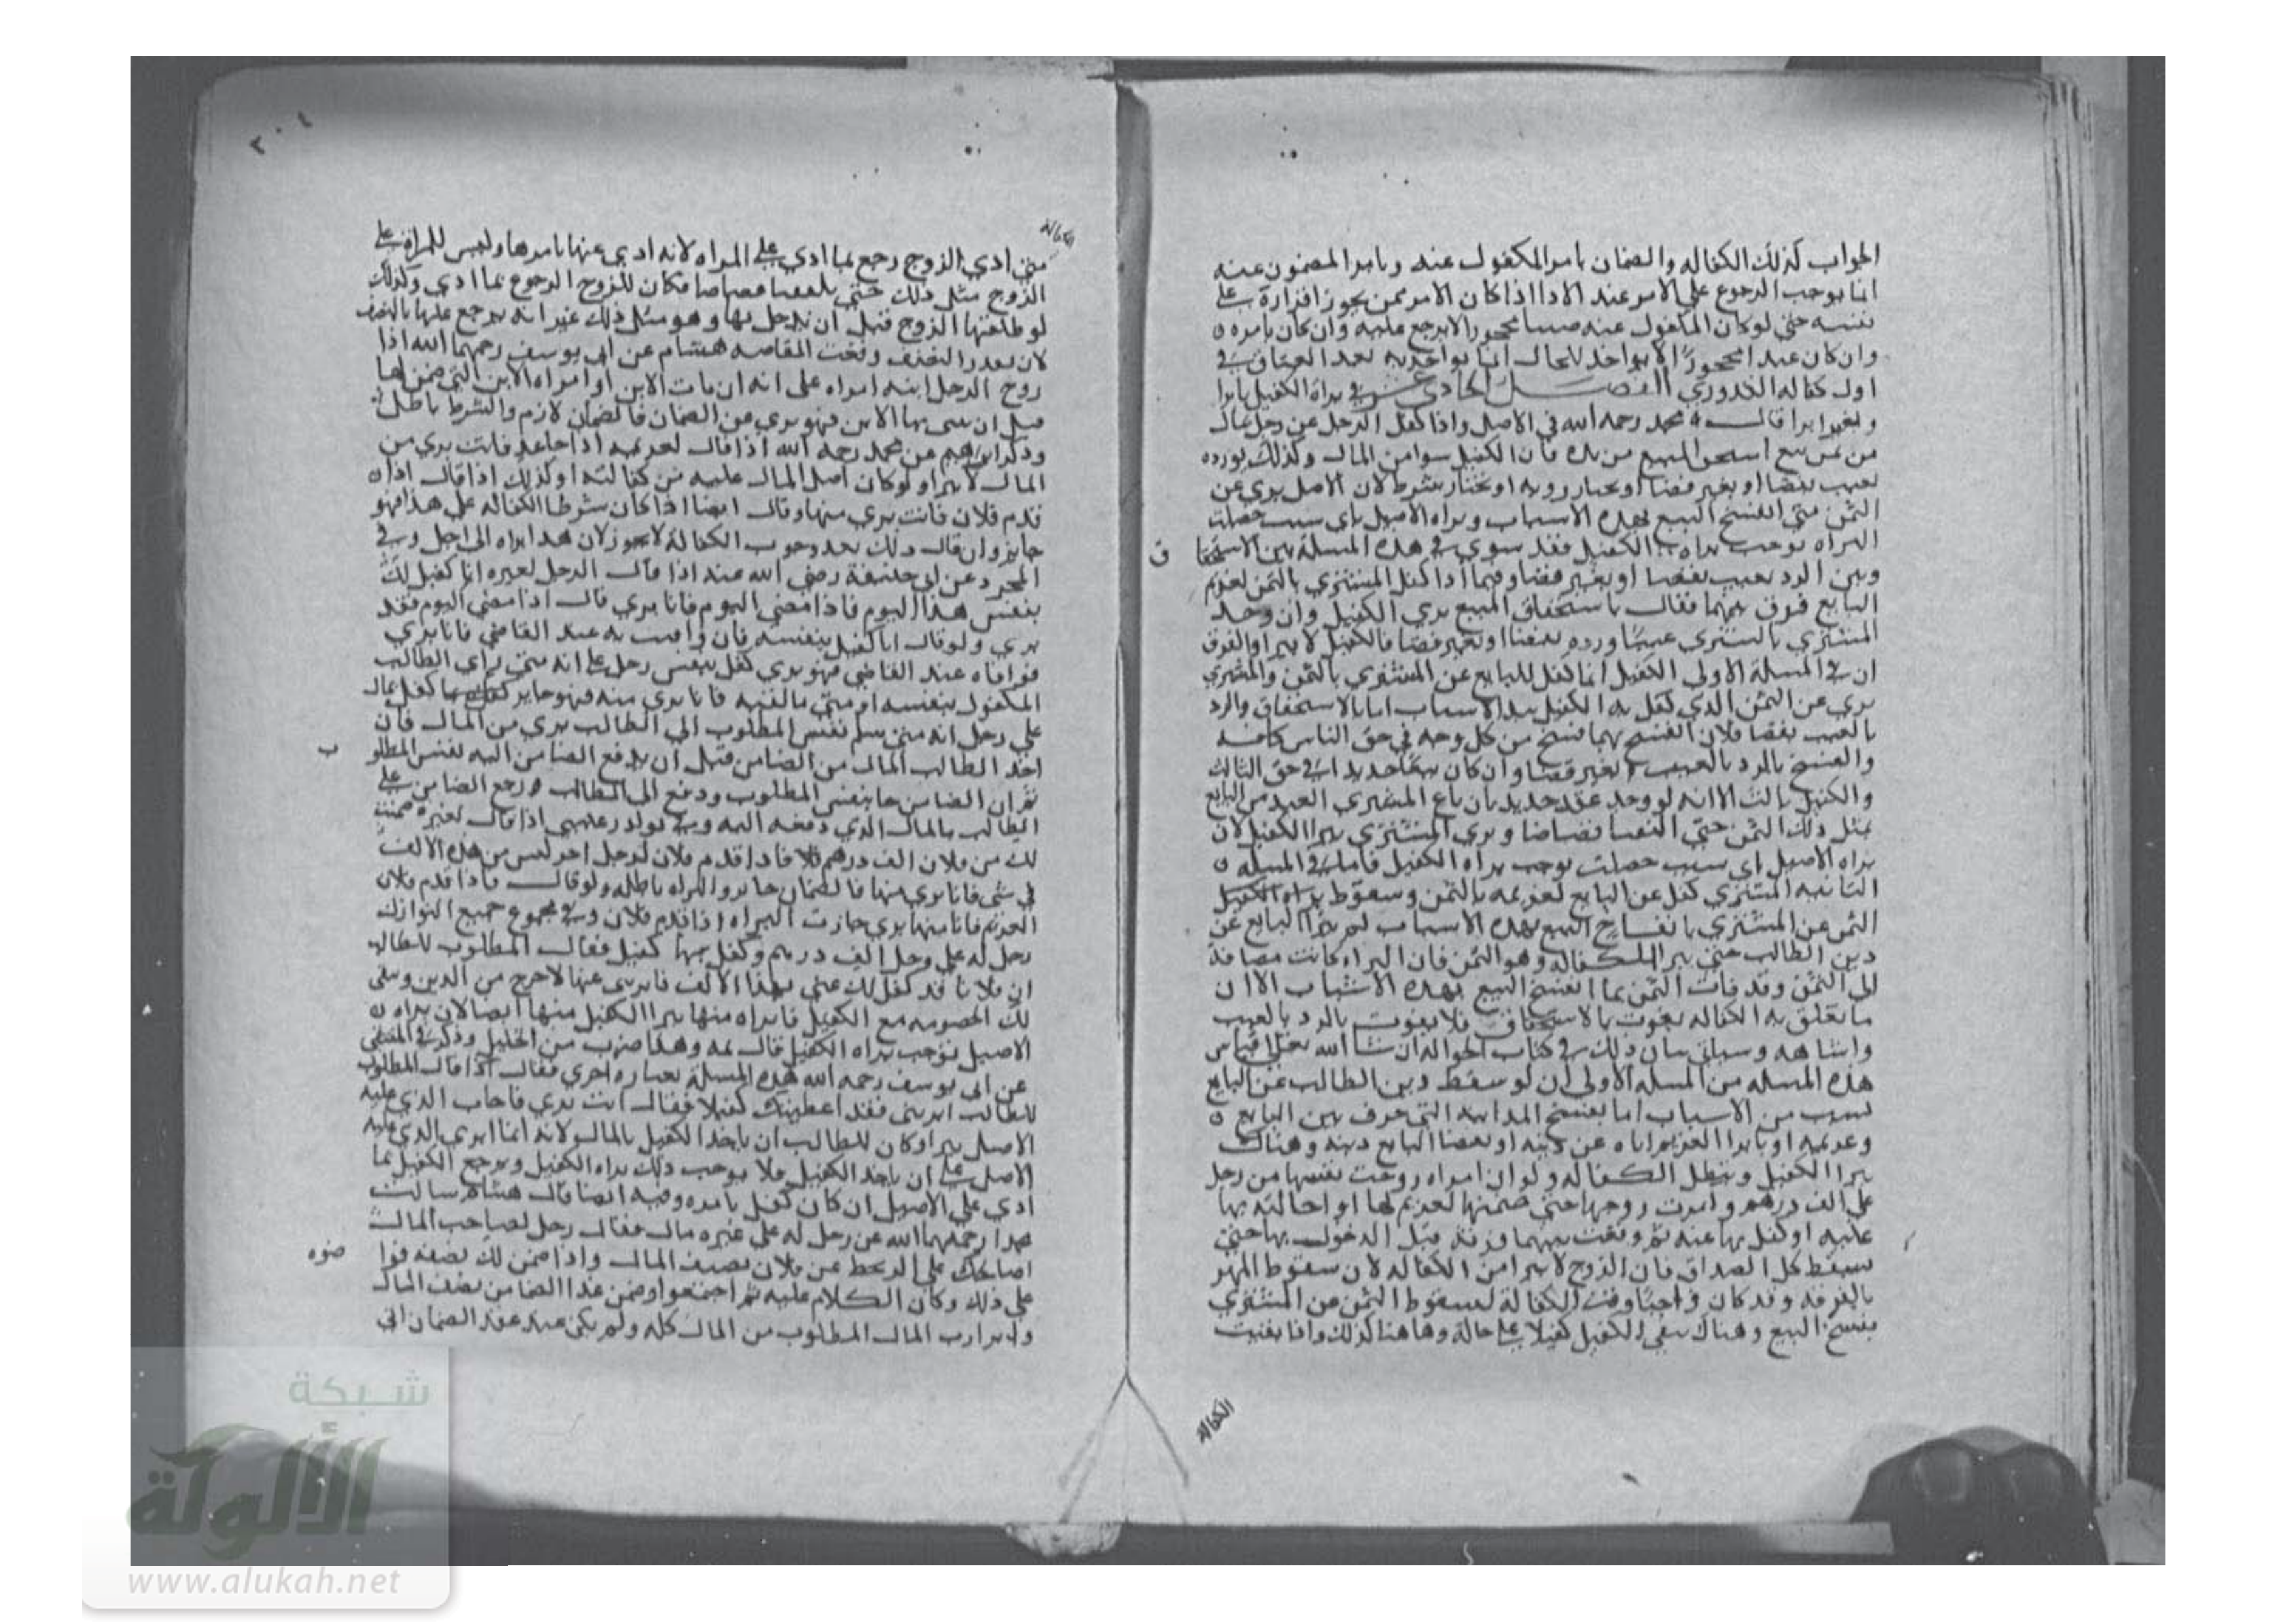 الجواب كذلك الكفاله والضمان بامر المكفول عنه وبامر المضمون عنه
انما يوجب الرجوع على الامر عند الادا اذا كان الامر ممن يجوز اقراره على
نفسه حتى لو كان المكفول عنه صبيا محجورا لا يرجع عليه وان كان بامره
وان كان عبدا محجورا لا يواخذ للحال انما يواخذ به بعد العتاق في
اول كفاله القدوري الفصل الحادي عشر في براة الكفيل بابرا
وبغير ابرا قال محمد رحمه الله في الاصل واذا كفل الرجل عن رجل بمال
من ثمن بيع استحق المبيع من يده فان الكفيل يبرا من المال وكذلك لو رده
بعيب بقضا او بغير قضا او بخيار رويه او بخيار شرط لان الاصيل بري عن
الثمن متى انفسخ البيع بهذه الاسباب وبراه الاصيل باي سبب حصلت
البراه توجب براه الكفيل فقد سوى في هذه المسلة بين الاستحقا ق
وبين الرد بعيب بقضا او بغير قضا وفيما اذا كفل المشتري بالثمن لغريم
البايع فرق بينهما فقال باستحقاق المبيع بري الكفيل وان وجد
المشتري بالمشترى عيبا ورده بقضا او بغير قضا فالكفيل لا يبرا والفرق
ان في المسلة الاولى الكفيل انما كفل للبايع عن المشتري بالثمن والمشتري
بري عن الثمن الذي كفل به الكفيل بهذه الاسباب اما بالاستحقاق والرد
بالعيب بقضا فلان الفسخ بهما فسخ من كل وجه في حق الناس كافه
والفسخ بالرد بالعيب بغير قضا وان كان بيعا جديدا في حق الثالث
والكفيل ثالث الا انه لو وجد عقد جديد بان باع المشتري العبد من البايع
بمثل ذلك الثمن حتى التقيا قصاصا وبري المشتري يبرا الكفيل لان
براه الاصيل باي سبب حصلت توجب براه الكفيل فاما في المسله
الثانيه المشتري كفل عن البايع لغريمه بالثمن وسقوط براه الكفيل
الثمن عن المشتري بانفساخ البيع بهذه الاسباب لم يبرا البايع عن
دين الطالب حتى يبرا الكفاله وهو الثمن فان البراه كانت مضافة
الى الثمن وقد فات الثمن بما انفسخ البيع بهذه الاسباب الا ان
ما تعلق به الكفاله يفوت بالاستحقاق فلا يفوت بالرد بالعيب
واشباهه وسياتي بيان ذلك في كتاب الحواله ان شا الله تعالى
هذه المسله من المسله الاولى ان لو سقط دين الطالب عن البايع
بسبب من الاسباب اما بفسخ المداينه التي جرت بين البايع
وغريمه او بابرا الغريم اياه عن دينه او بقضا البايع دينه وهناك
يبرا الكفيل وتبطل الكفاله ولو ان امراه زوجت نفسها من رجل
على الف درهم وامرت زوجها حتى ضمنها لغريم لها او احالته بها
عليه او كفل بها عنه ثم وقعت بينهما فرقة قبل الدخول بها حتى
سقط كل الصداق فان الزوج لا يبرا من الكفاله لان سقوط المهر
بالفرقه وقد كان واجبا وقت الكفالة كسقوط الثمن عن المشتري
بفسخ البيع وهناك يبقى الكفيل كفيلا على حاله وهاهنا كذلك واذا بقيت
الكفالة
٢٠٤
الكفالة
متى ادي الزوج رجع بما ادي على المراه لانه ادى عنها بامرها وليس للمراة على
الزوج مثل ذلك حتى يلتقيا قصاصا فكان للزوج الرجوع بما ادي وكذلك
لو طلقها الزوج قبل ان يدخل بها وهو مثل ذلك غير انه يرجع عليها بالنصف
لان بقدر النصف وقعت المقاصه هشام عن ابي يوسف رحمهما الله اذا
زوج الرجل ابنه امراه على انه ان مات الابن او امراه الابن التي ضمن لها
قبل ان يبني بها الابن فهو بري عن الضمان فالضمان لازم والشرط باطل
وذكر ابراهيم عن محمد رحمه الله اذا قال لغريمه اذا جا غد فانت بري من
المال لا يبرا ولو كان اصل المال عليه من كفالته او كذلك اذا قال اذا
قدم فلان فانت بري منها وقال ايضا اذا كان شرطا الكفاله على هذا فهو
جايز وان قال ذلك بعد وجوب الكفالة لا يجوز لان هذا براه الى اجل وفي
المجرد عن ابي حنيفة رضي الله عنه اذا قال الرجل لغيره انا كفيل لك
بنفس هذا اليوم فاذا مضى اليوم فانا بري قال اذا مضى اليوم فقد
بري ولو قال انا كفيل بنفسه فان وافيت به عند القاضي فانا بري
فوافاه عند القاضي فهو بري كفل بنفس رجل على انه متى راي الطالب
المكفول بنفسه او متى ما لقيه فانا بري منه فهو جايز كفل بمال
على رجل انه متى سلم نفس المطلوب الى الطالب بري من المال فان
اخذ الطالب المال من الضامن قبل ان يدفع الضامن اليه نفس المطلو ب
ثم ان الضامن جا بنفس المطلوب ودفع الى الطالب رجع الضامن على
الطالب بالمال الذي دفعه اليه وفي نوادر اذا قال لغيره ضمنت
لك من فلان الف درهم فاذا قدم فلان لرجل اخر ليس من هذه الالف
في شي فانا بري منها فالضمان جايز والبراه باطله ولو قال فاذا قدم فلان
الغريم فانا منها بري جازت البراه اذا قدم فلان وفي مجموع جميع النوازل
رجل له على رجل الف درهم وكفل بها كفيل فقال المطلوب للطالب
ان فلانا قد كفل لك عني بهذا الالف فابرني عنها لاخرج من الدين وتبقى
لك الخصومه مع الكفيل فابراه منها يبرا الكفيل منها ايضا لان براه
الاصيل توجب براه الكفيل قال ثمه وهذا ضرب من الحليل وذكر في المنتقى
عن ابي يوسف رحمه الله هذه المسلة بعباره اخرى فقال اذا قال المطلوب
للطالب ابرني فقد اعطيتك كفيلا فقال انت بري فاجاب الذي عليه
الاصل يبرا وكان للطالب ان ياخذ الكفيل بالمال لانه انما ابرى الذي عليه
الاصل على ان ياخذ الكفيل فلا يوجب ذلك براه الكفيل ويرجع الكفيل بما
ادي على الاصيل ان كان كفل بامره وفيه ايضا قال هشام سالت
محمدا رحمهما الله عن رجل له على غيره مال فقال رجل لصاحب المال
اصالحك على ان تحط عن فلان نصف المال واذا ضمن لك نصفه فوا ضوه
على ذلك وكان الكلام عليه ثم اجتمعوا وضمن غدا الضامن نصف المال
وابرا رب المال المطلوب من المال كله ولم يكن عند عقد الضمان الى
شبكة
الألوكة
www.alukah.net